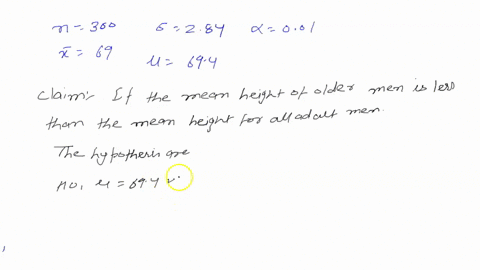 n = 300 σ = 2.84 α = 0.01
x̄ = 69 μ = 69.4
Claim:- If the mean height of older men is less
than the mean height for all adult men.
The hypothesis are
H0, μ = 69.4 v.